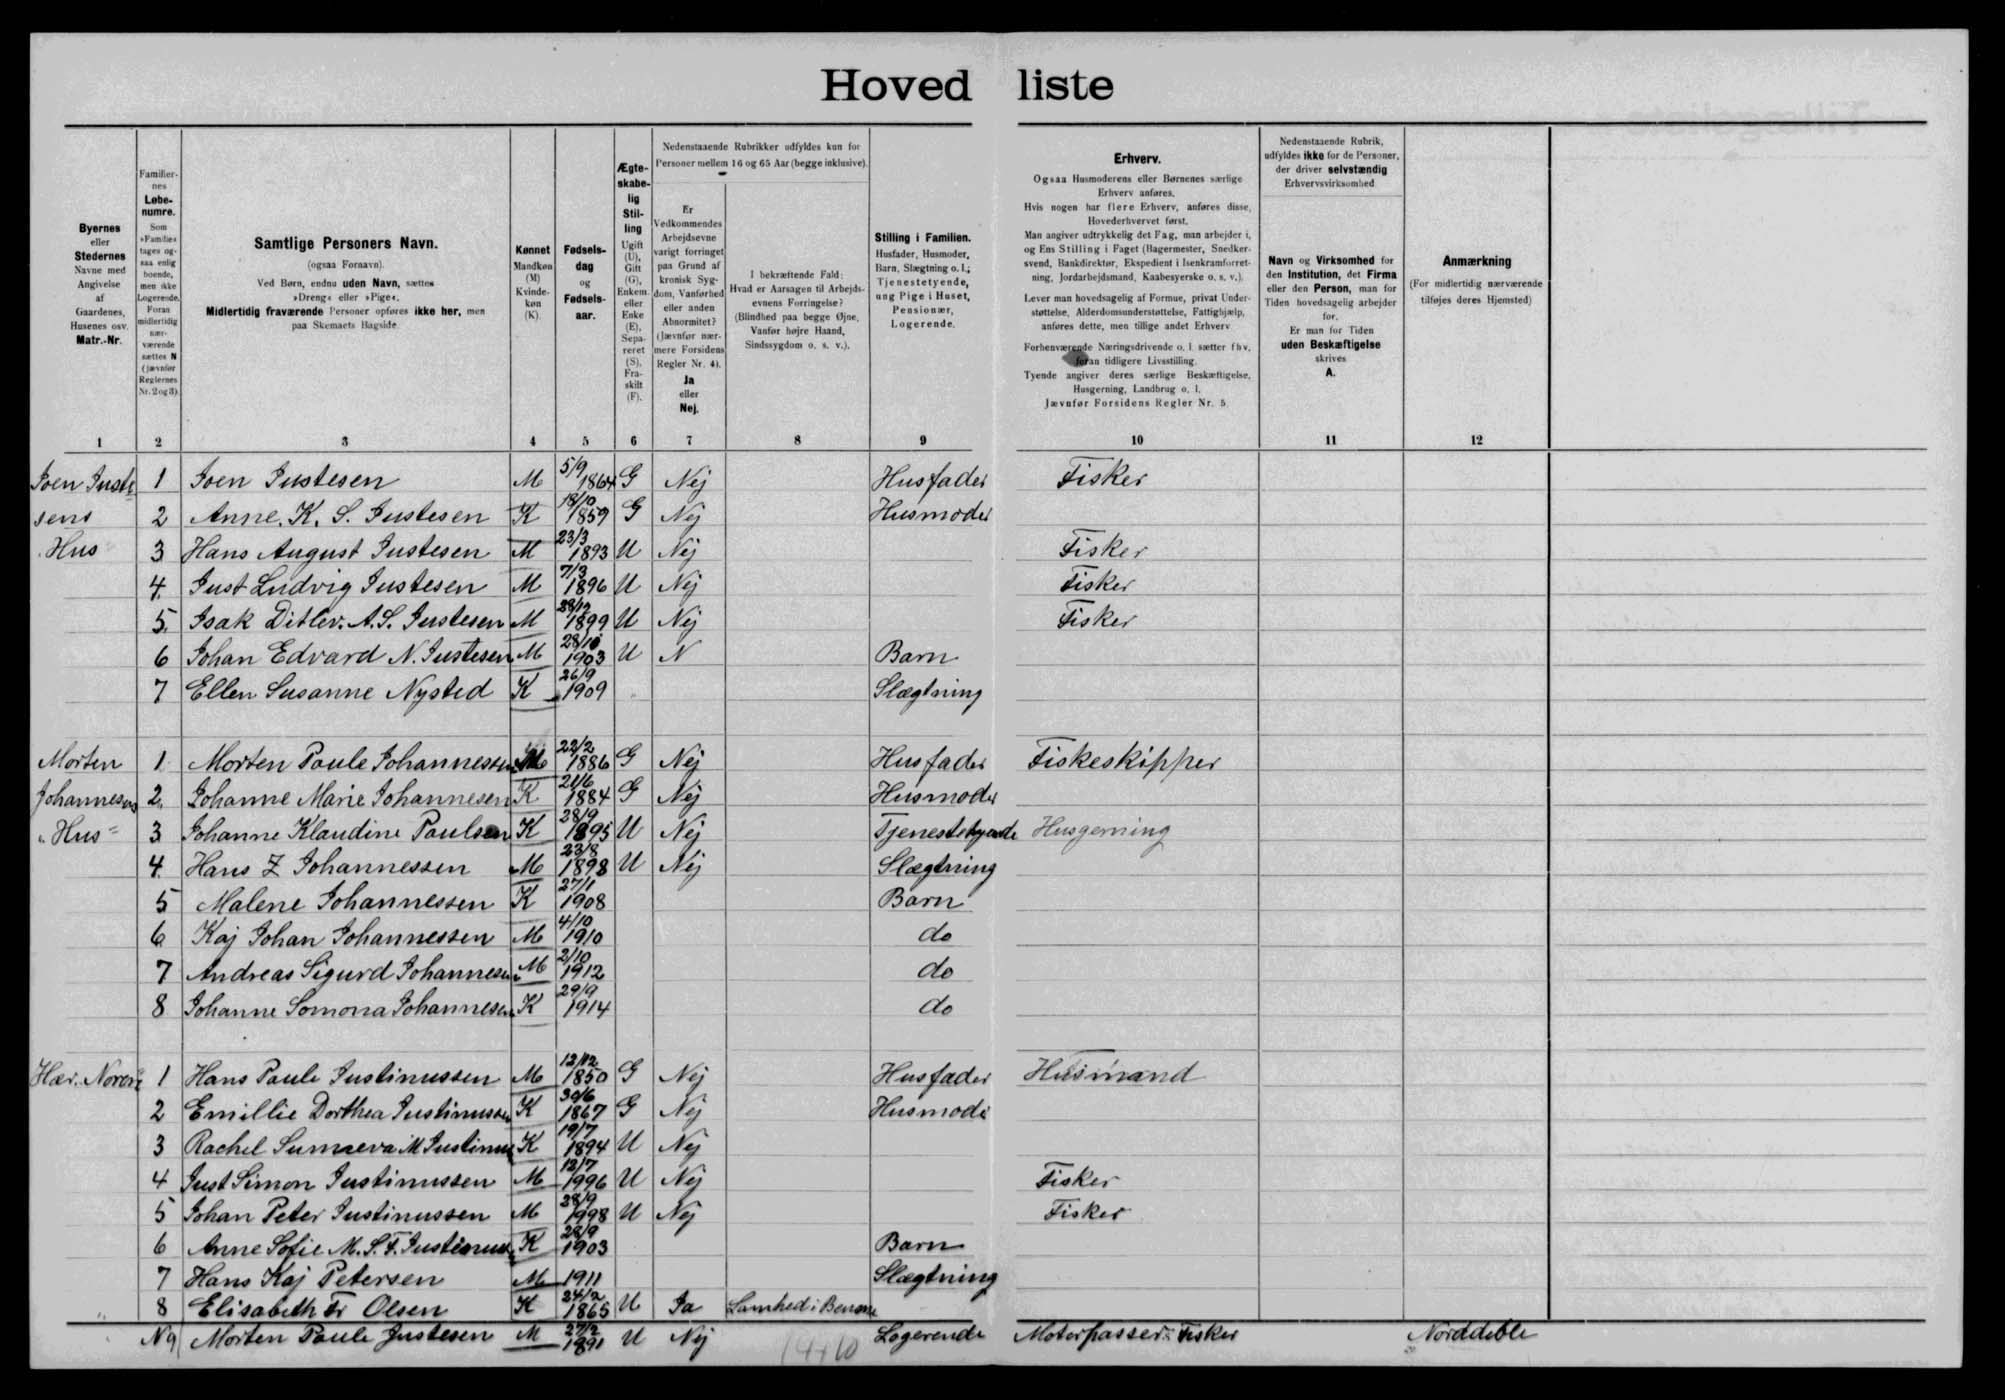 Hoved liste
Byernes eller Stedernes Navne med Angivelse af Gaardenes, Husenes osv. Matr.-Nr.
Familiernes Løbenumre. Som »Familie« tages ogsaa enlig boende, men ikke Logerende. Foran midlertidig nærværende sættes N (jævnfør Reglernes Nr. 2 og 3).
Samtlige Personers Navn. (ogsaa Fornavn). Ved Børn, endnu uden Navn, sættes »Dreng« eller »Pige«. Midlertidig fraværende Personer opføres ikke her, men paa Skemaets Bagside.
Kønnet Mandkøn (M) Kvindekøn (K).
Fødselsdag og Fødselsaar.
Ægteskabelig Stilling Ugift (U), Gift (G), Enkem. eller Enke (E), Separeret (S), Fraskilt (F).
Nedenstaaende Rubrikker udfyldes kun for Personer mellem 16 og 65 Aar (begge inklusive).
Er Vedkommendes Arbejdsevne varigt forringet paa Grund af kronisk Sygdom, Vanførhed eller anden Abnormitet? (Jævnfør nærmere Forsidens Regler Nr. 4). Ja eller Nej.
I bekræftende Fald: Hvad er Aarsagen til Arbejdsevnens Forringelse? (Blindhed paa begge Øjne, Vanfør højre Haand, Sindssygdom o. s. v.).
Stilling i Familien. Husfader, Husmoder, Barn, Slægtning o. l.; Tjenestetyende, ung Pige i Huset, Pensionær, Logerende.
Erhverv. Ogsaa Husmoderens eller Børnenes særlige Erhverv anføres. Hvis nogen har flere Erhverv, anføres disse, Hovederhvervet først. Man angiver udtrykkelig det Fag, man arbejder i, og Ens Stilling i Faget (Bagermester, Snedkersvend, Bankdirektør, Ekspedient i Isenkramforretning, Jordarbejdsmand, Kaabesyerske o. s. v.). Lever man hovedsagelig af Formue, privat Understøttelse, Alderdomsunderstøttelse, Fattighjælp, anføres dette, men tillige andet Erhverv. Forhenværende Næringsdrivende o. l. sætter fhv. foran tidligere Livsstilling. Tyende angiver deres særlige Beskæftigelse, Husgerning, Landbrug o. l. Jævnfør Forsidens Regler Nr. 5.
Nedenstaaende Rubrik, udfyldes ikke for de Personer, der driver selvstændig Erhvervsvirksomhed
Navn og Virksomhed for den Institution, det Firma eller den Person, man for Tiden hovedsagelig arbejder for. Er man for Tiden uden Beskæftigelse skrives A.
Anmærkning (For midlertidig nærværende tilføjes deres Hjemsted)
1 2 3 4 5 6 7 8 9 10 11 12
Joen Juste 1 Joen Justesen M 5/9 1864 G Nej Husfader Fisker
sens 2 Anne. K. S. Justesen K 18/10 1859 G Nej Husmoder
Hus 3 Hans August Justesen M 23/3 1893 U Nej Fisker
4. Just Ludvig Justesen M 7/3 1896 U Nej Fisker
5. Isak Ditlev. A.S. Justesen M 28/12 1899 U Nej Fisker
6 Johan Edvard N. Justesen M 28/10 1903 U N Barn
7 Ellen Susanne Nysted K 26/9 1909 Slægtning
Morten 1 Morten Paule Johannessen M 22/2 1886 G Nej Husfader Fiskeskipper
Johannesens 2. Johanne Marie Johannesen K 21/6 1884 G Nej Husmoder
"Hus" 3 Johanne Klaudine Paulsen K 28/9 1895 U Nej Tjenestetyende Husgerning
4. Hans Z Johannessen M 23/8 1898 U Nej Slægtning
5 Malene Johannessen K 27/1 1908 Barn
6. Kaj Johan Johannessen M 4/10 1910 do
7 Andreas Sigurd Johannesen M 2/10 1912 do
8 Johanne Somona Johannesen K 29/9 1914 do
1 Hans Paule Justinussen M 12/12 1850 G Nej Husfader Husmand
2 Emillie Dorthea Justinussen K 30/6 1867 G Nej Husmode
3 Rachel Sunneva M Justinus K 19/7 1894 U Nej
4 Just Simon Justinussen M 12/7 1996 U Nej Fisker
5 Johan Peter Justinussen M 28/9 1998 U Nej Fisker
6 Anne Sofie M. S. F. Justinus K 28/9 1903 Barn
7 Hans Kaj Petersen M 1911 Slægtning
8 Elisabeth Fr Olsen K 24/2 1865 U Ja Lamhed i Benene
N9 Morten Paule Justesen M 27/2 1891 U Nej Logerende Motorpasser Fisker Norddeble
14+10